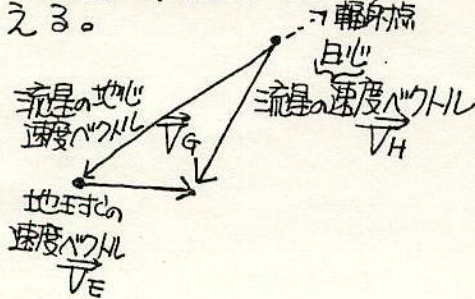 える。
輻射点
日心
流星の速度ベクトル
V_H
流星の地心
速度ベクトル
V_G
地球の
速度ベクトル
V_E